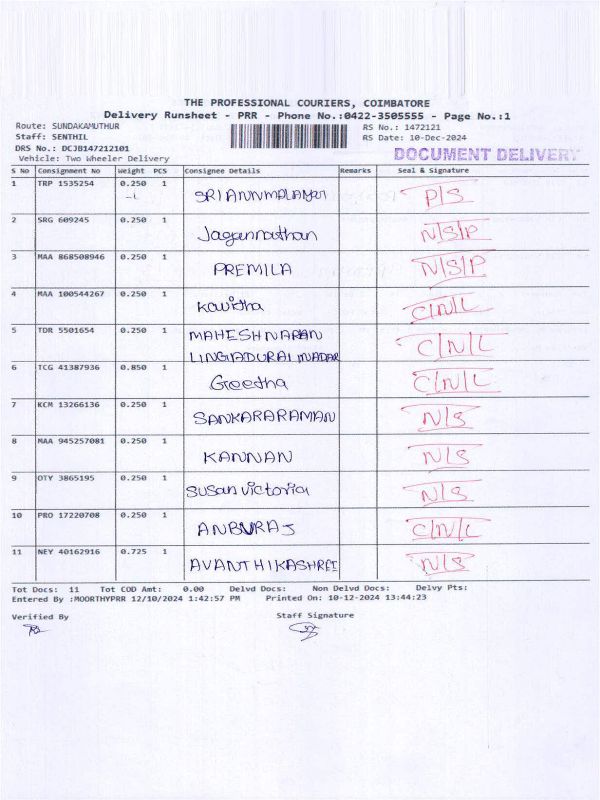 THE PROFESSIONAL COURIERS, COIMBATORE
Delivery Runsheet - PRR - Phone No.:0422-3505555 - Page No.:1
Route: SUNDAKAMUTHUR RS No.: 1472121
Staff: SENTHIL RS Date: 10-Dec-2024
DRS No.: DCJB147212101 DOCUMENT DELIVERY
Vehicle: Two Wheeler Delivery
S No Consignment No Weight PCS Consignee Details Remarks Seal & Signature
1 TRP 1535254 0.250 1 SRI ANNMALAYAR P/S
2 SRG 609245 0.250 1 Jagannathan N/S/P
3 MAA 868508946 0.250 1 PREMILA N/S/P
4 MAA 100544267 0.250 1 Kavitha C/N/L
5 TDR 5501654 0.250 1 MAHESH NARAN C/N/L
LINGADURAI NADAR
6 TCG 41387936 0.850 1 Geetha C/N/L
7 KCM 13266136 0.250 1 SANKARARAMAN N/S
8 MAA 945257081 0.250 1 KANNAN N/S
9 OTY 3865195 0.250 1 Susan victoria N/S
10 PRO 17220708 0.250 1 ANBURAJ C/N/L
11 NEY 40162916 0.725 1 AVANTHIKASHREE N/S
Tot Docs: 11 Tot COD Amt: 0.00 Delvd Docs: Non Delvd Docs: Delvy Pts:
Entered By :MOORTHYPRR 12/10/2024 1:42:57 PM Printed On: 10-12-2024 13:44:23
Verified By Staff Signature